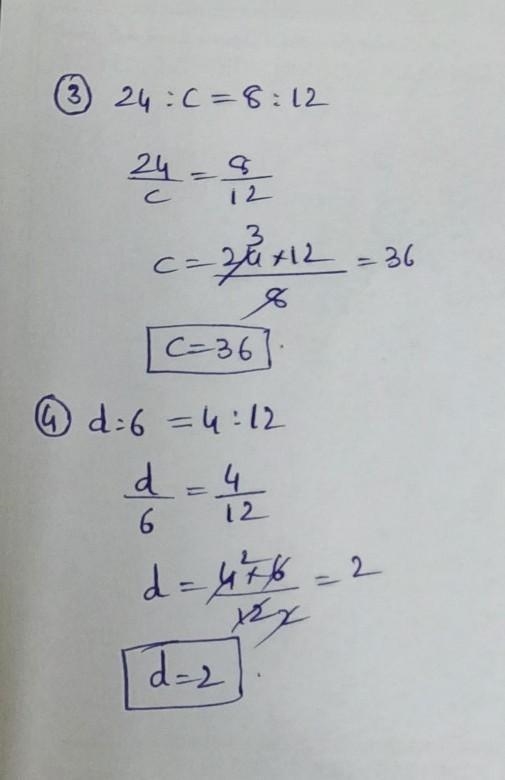 ③ 24 : C = 8 : 12
24/C = 8/12
C = 24 3 × 12 / 8 = 36
C = 36
④ d : 6 = 4 : 12
d/6 = 4/12
d = 4 2 × 6 / 12 2 = 2
d = 2